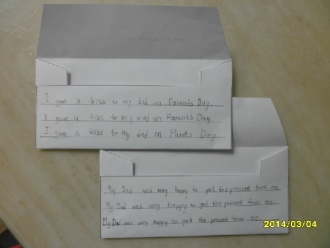 I gave a kiss to my dad on Parents Day.
I gave a kiss to my dad on Parents Day.
I gave a kiss to my dad on Parents Day.
My Dad was very happy to get the present from me.
My Dad was very happy to get the present from me.
My Dad was very happy to get the present from me.
2014/03/04